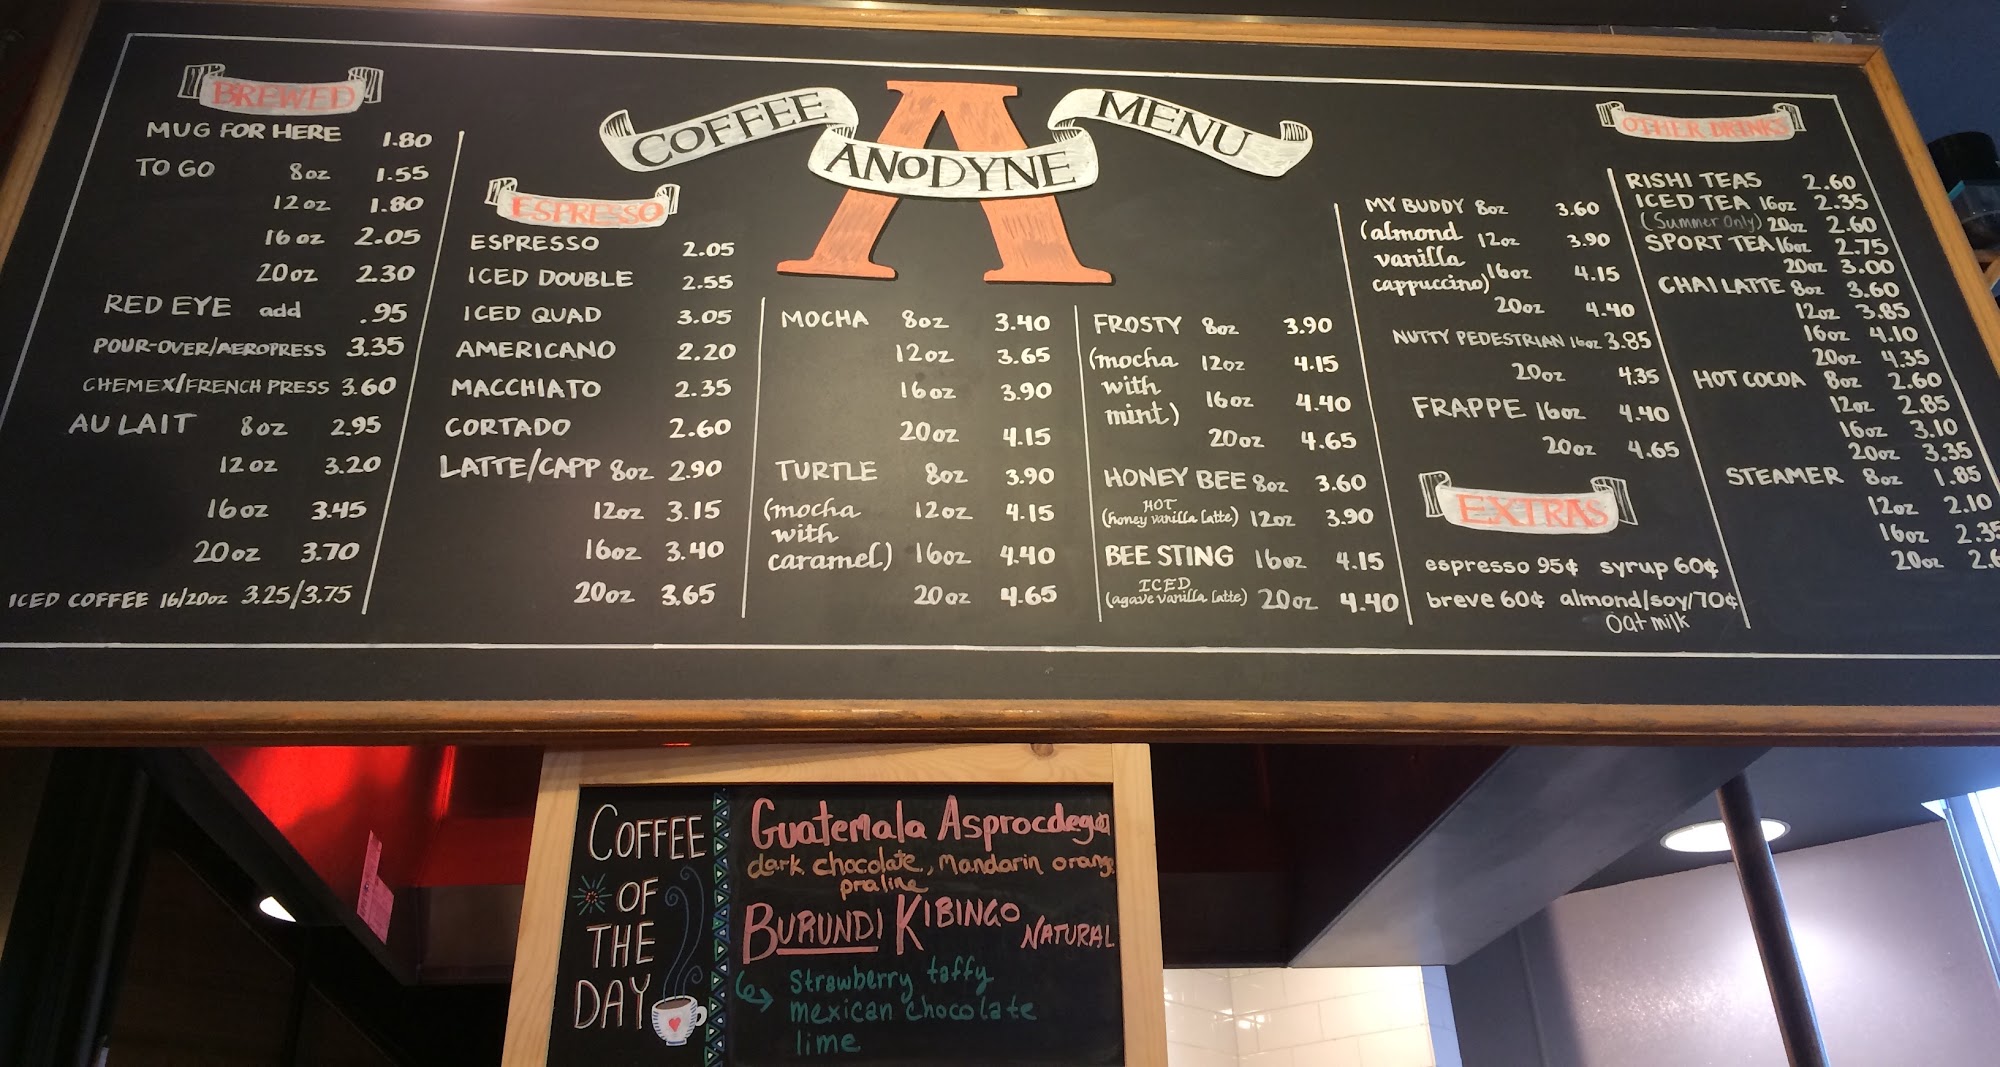 COFFEE ANODYNE MENU
BREWED
MUG FOR HERE 1.80
TO GO 8oz 1.55
12oz 1.80
16oz 2.05
20oz 2.30
RED EYE add .95
POUR-OVER/AEROPRESS 3.35
CHEMEX/FRENCH PRESS 3.60
AU LAIT 8oz 2.95
12oz 3.20
16oz 3.45
20oz 3.70
ICED COFFEE 16/20oz 3.25/3.75
ESPRESSO
ESPRESSO 2.05
ICED DOUBLE 2.55
ICED QUAD 3.05
AMERICANO 2.20
MACCHIATO 2.35
CORTADO 2.60
LATTE/CAPP 8oz 2.90
12oz 3.15
16oz 3.40
20oz 3.65
MOCHA 8oz 3.40
12oz 3.65
16oz 3.90
20oz 4.15
TURTLE 8oz 3.90
(mocha 12oz 4.15
with
caramel) 16oz 4.40
20oz 4.65
FROSTY 8oz 3.90
(mocha 12oz 4.15
with
mint) 16oz 4.40
20oz 4.65
HONEY BEE 8oz 3.60
HOT
(honey vanilla latte) 12oz 3.90
BEE STING 16oz 4.15
ICED
(agave vanilla latte) 20oz 4.40
MY BUDDY 8oz 3.60
(almond 12oz 3.90
vanilla
cappuccino) 16oz 4.15
20oz 4.40
NUTTY PEDESTRIAN 16oz 3.85
20oz 4.35
FRAPPE 16oz 4.40
20oz 4.65
EXTRAS
espresso 95¢ syrup 60¢
breve 60¢ almond/soy/70¢
oat milk
OTHER DRINKS
RISHI TEAS 2.60
ICED TEA 16oz 2.35
(Summer Only) 20oz 2.60
SPORT TEA 16oz 2.75
20oz 3.00
CHAI LATTE 8oz 3.60
12oz 3.85
16oz 4.10
20oz 4.35
HOT COCOA 8oz 2.60
12oz 2.85
16oz 3.10
20oz 3.35
STEAMER 8oz 1.85
12oz 2.10
16oz 2.35
20oz 2.6
COFFEE
OF
THE
DAY
Guatemala Asprocdegua
dark chocolate, Mandarin orange
praline
BURUNDI KIBINGO NATURAL
Strawberry taffy
mexican chocolate
lime